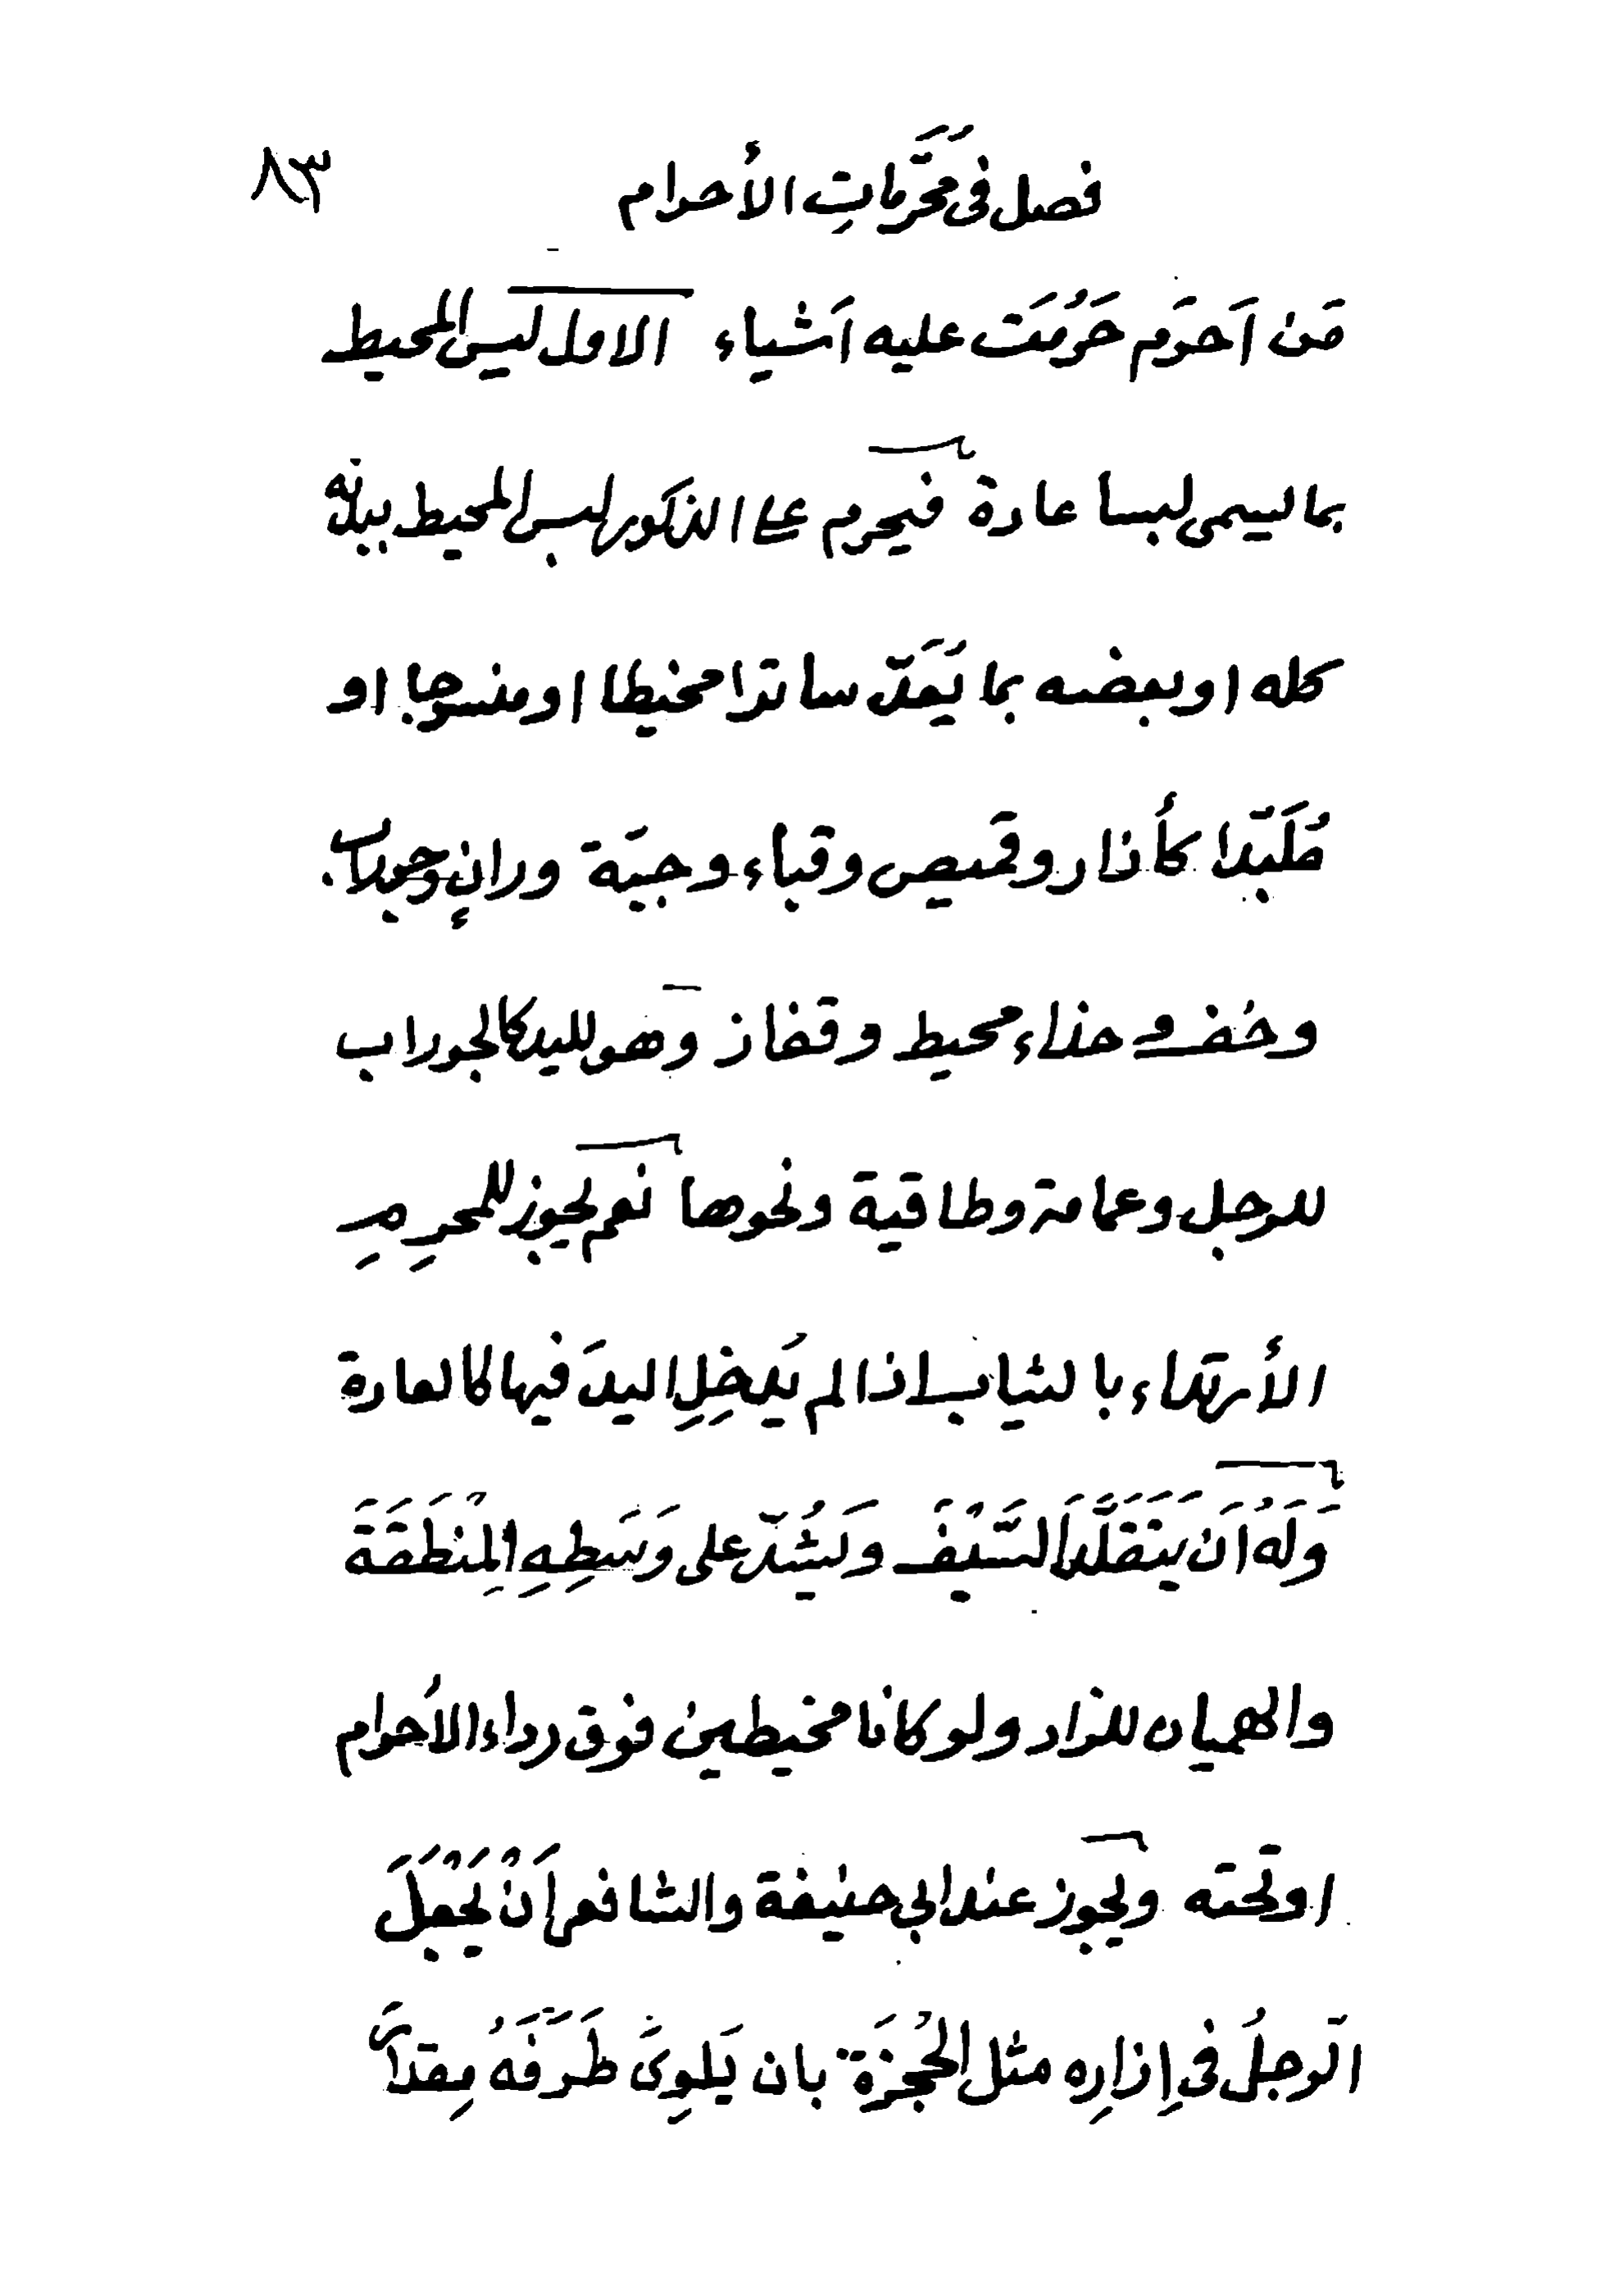 فصل فى مُحَرَّمَاتِ الأحرام ٨٣
مَن اَحرَم حَرُمَت عليه اَشياء الاول لبس المحيط
بما يسمى لبسا عادة فيحرم على الذكور لبس المحيط ببدنه
كله او بعضه بما يُعَدّ ساترا مخيطا او منسوجا او
مُلَبّدا كأزار وقميص وقباء وجبّة ورانٍ وجوراب
وخف وحذاء محيط وقفاز وهو لليد كالجوراب
للرجل وعمامة وطاقية ونحوها نعم يجوز للمحرِمِ
الأرتداء بالثياب اذا لم يُدخِلِ اليدَ فيها كالعادة
وَلَهُ اَن يَتَقَلَّدَ السَّيْفَ وَيَشُدّ على وَسَطِهِ المِنْطَقَةَ
والهميان للزاد ولو كانا مخيطين فوق رداء الأحرام
او تحته ويجوز عند ابي حنيفة والشافعى اَنْ يَجْعَلَ
الرّجلُ فى إزارِه مثل الحُجزَة بان يَلوِىَ طَرَفَهُ